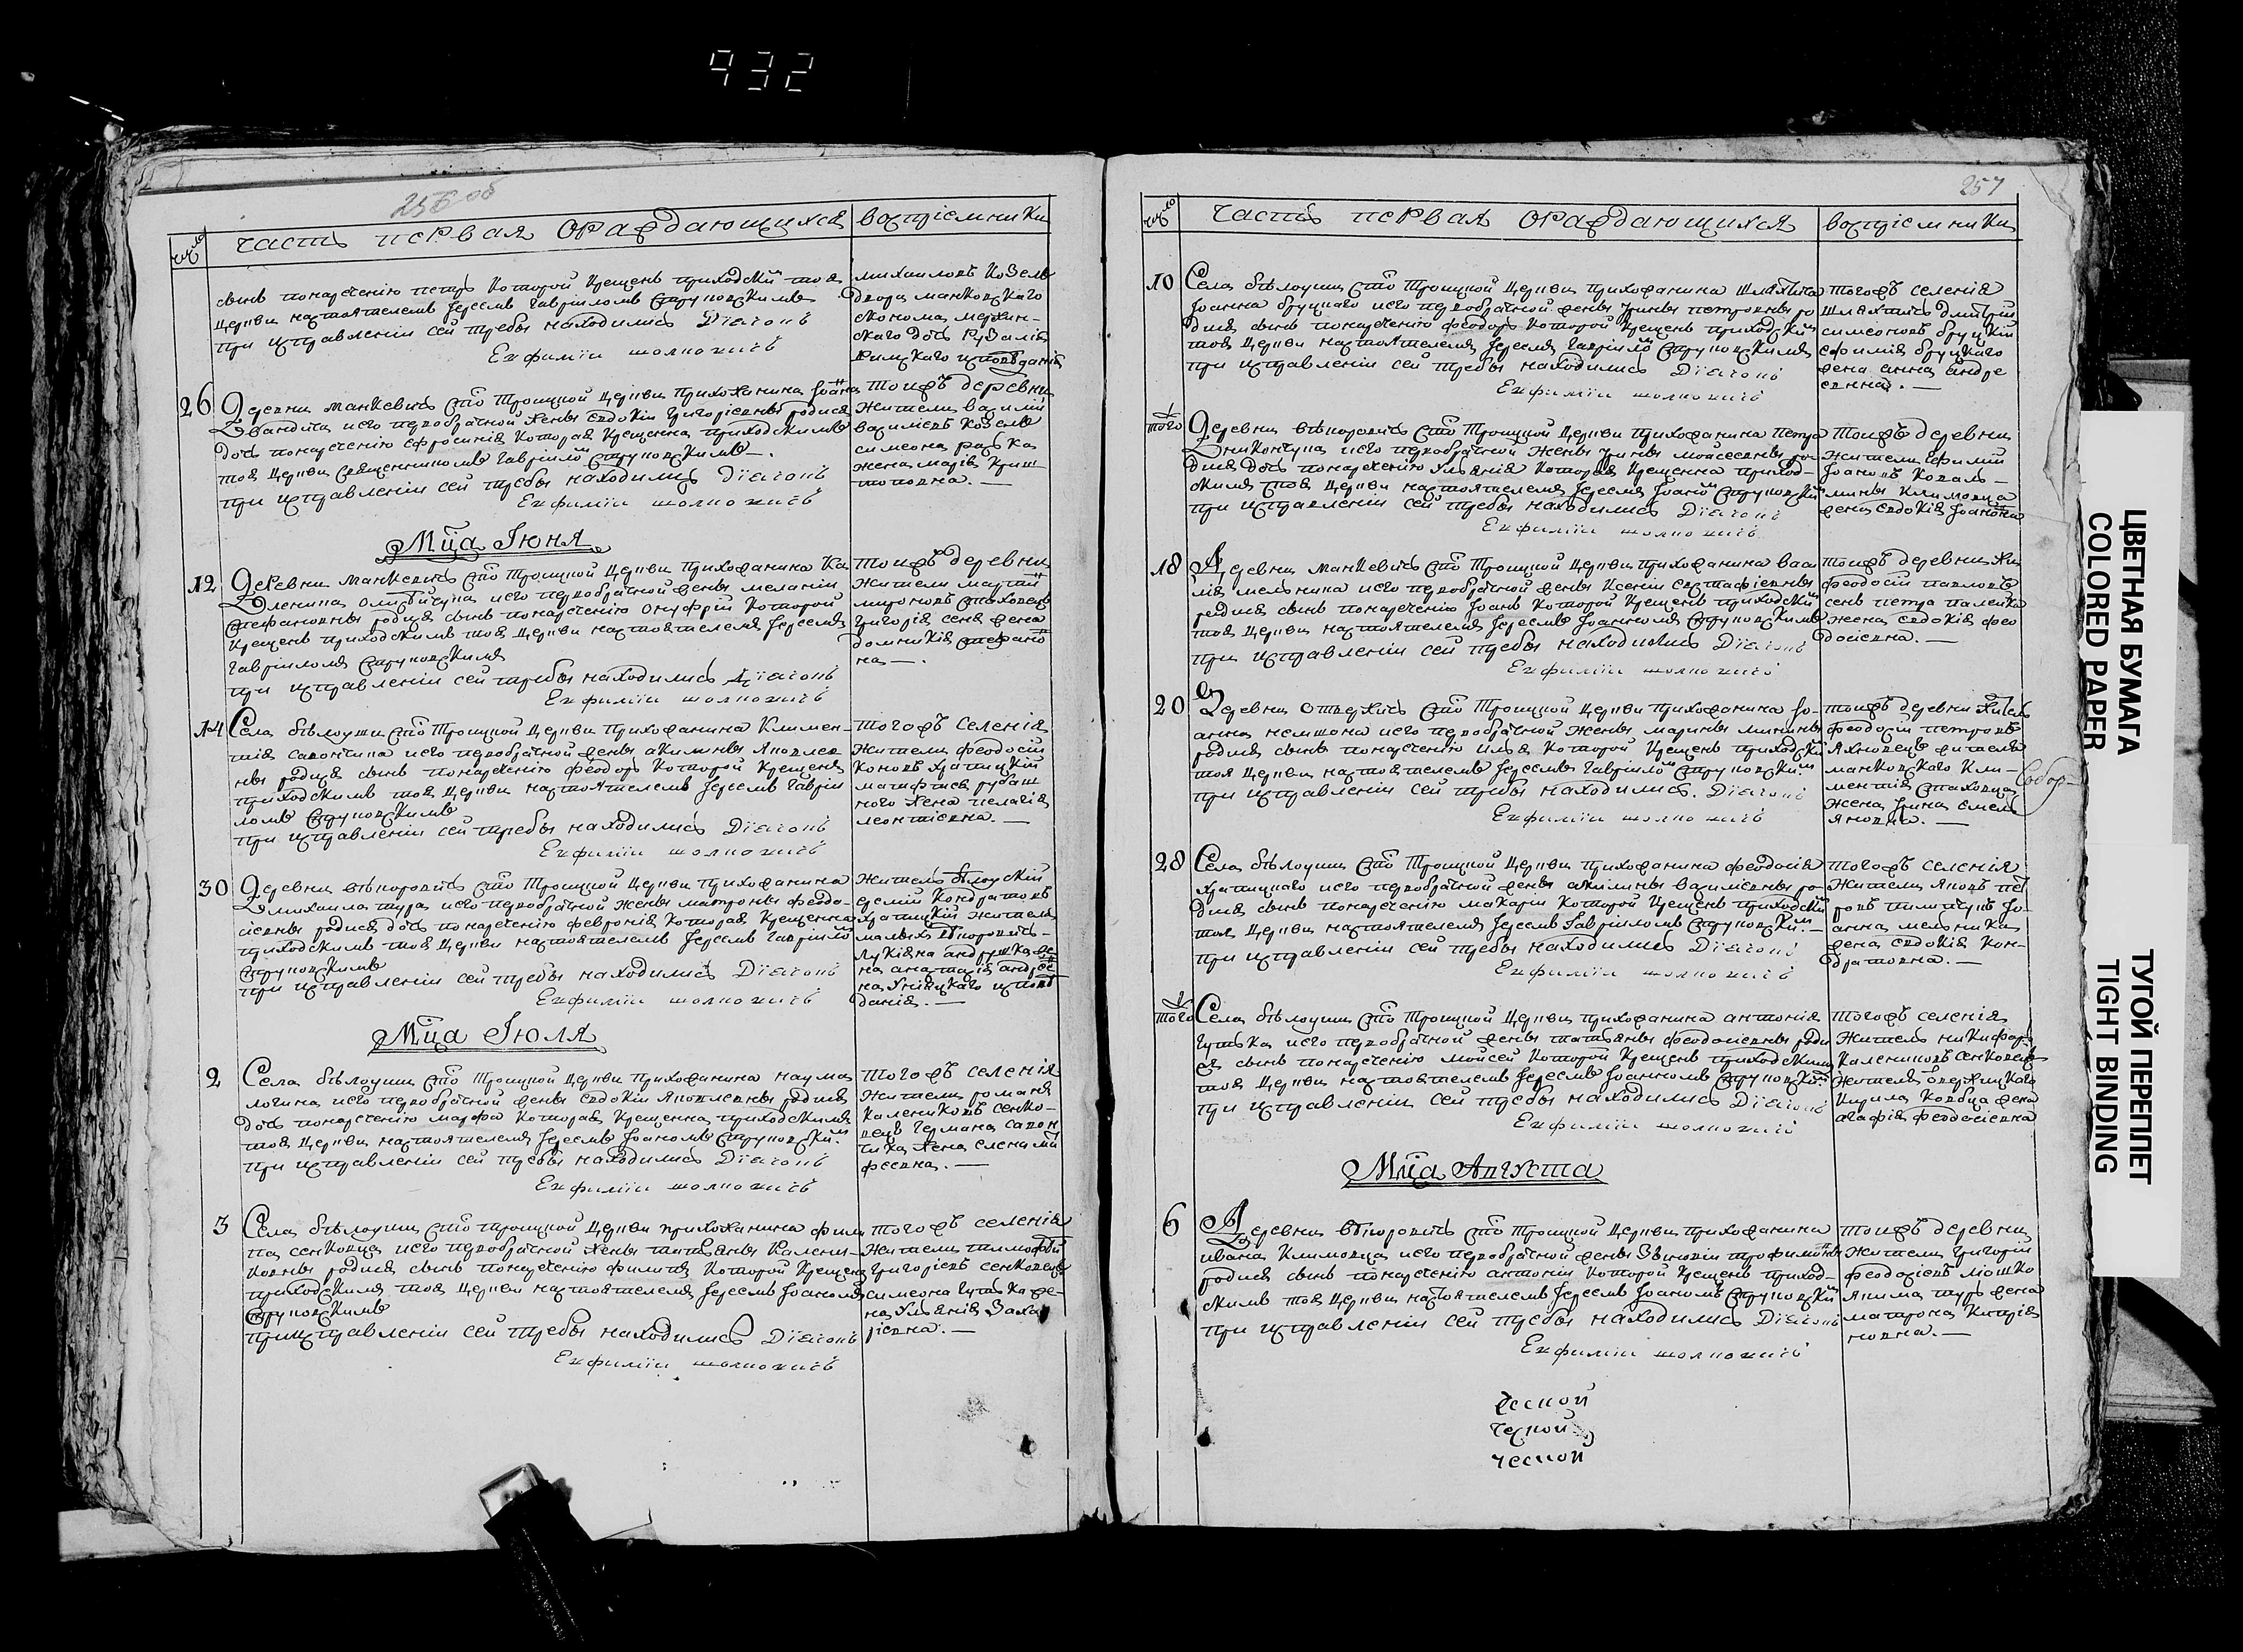 932
256 об
число
часть первая ораждающихся
воспріемники
сынъ понареченію петръ Которой Крещенъ приходскимъ тоя
Церкви настоятелемъ Іереемъ Гавріиломъ Струковскимъ
при исправленіи сей требы находились Діаконъ
Евфимїи шолкович
михаиловъ Козелъ
двора манковскаго
економа
скаго дочь Розалія
Римскаго исповѣданія
26
Деревни манкевичъ сто Троицкой Церкви прихожанина Іоанна
иего первобрачной жены евдокіи Григоріевны родися
дочь понареченію ефросинія Которая Крещенна приходскимъ
тоя Церкви священникомъ Гавріиломъ Струковскимъ
при исправленіи сей требы находились Діаконъ
Евфимїи шолкович
тоижъ деревни
жители василій
василіевъ Козелъ
симеона рабка
жена марія Крис-
топовна. —
Мца Іюня
12
Деревни манкевичъ сто Троицкой Церкви прихожанина Ка
ленника иего первобрачной жены меланіи
стефановны родися сынъ понареченію Онуфрій Которой
Крещенъ приходскимъ тоя Церкви настоятелемъ Іереемъ
Гавріиломъ Струковскимъ
при исправленіи сей требы находились Діаконъ
Евфимїи шолкович
тоижъ деревни
жители
мироновъ стаховецъ
Григорія жена
домникія стефано
на — .
14
Села бѣлоуши сто Троицкой Церкви прихожанина Климен-
тія савончика иего первобрачной жены акилины Яковлев
ны родися сынъ понареченію феодоръ Которой Крещенъ
приходскимъ тоя Церкви настоятелемъ Іереемъ Гавріи
ломъ Струковскимъ
при исправленіи сей требы находились Діаконъ
Евфимїи шолкович
тогожъ селенія
жители феодосій
Коновъ храпицкій
матфіея рубаш
ного жена пелагія
леонтіевна. —
30
Деревни вѣпоровичъ сто Троицкой Церкви прихожанина
михаила тура иего первобрачной жены матроны феодо-
сіевны родися дочь понареченію февронія Которая Крещенна
приходскимъ тоя Церкви настоятелемъ Іереемъ Гавріило
Струковскимъ
при исправленіи сей требы находились Діаконъ
Евфимїи шолкович
житель бѣлоускій
Кондратовъ
храпицкій жителя
малыхъ вѣпоровичъ
Лукіяна андрушка же
на анастасія андрее
на Уніяцкаго исповѣ
данія. —
Мца Іюля
2
Села бѣлоуши сто Троицкой Церкви прихожанина наума
логина иего первобрачной жены евдокіи Яковлевны родися
дочь понареченію марфа Которая Крещенна приходскимъ
тоя Церкви настоятелемъ Іереемъ Іоанномъ Струковским
при исправленіи сей требы находились Діаконъ
Евфимїи шолкович
тогожъ селенія
жители романъ
Калениковъ сенко-
вецъ Германа савон
чика жена елена
феевна. —
3
Села бѣлоуши сто Троицкой Церкви прихожанина фили
па сенковца иего первобрачной жены татьяны Калени-
Ковны родися сынъ понареченію филипъ Которой Крещенъ
приходскимъ тоя Церкви настоятелемъ Іереемъ Іоанномъ
Струковскимъ
при исправленіи сей требы находились Діаконъ
Евфимїи шолкович
тогожъ селенія
жители тимофей
Григоріевъ сенковецъ
симеона гутька же-
на Ульянія Заха
ріевна. —
257
число
часть первая ораждающихся
воспріемники
10
Села бѣлоуши сто Троицкой Церкви прихожанина шляхтича
Іоанна бруцкаго иего первобрачной жены Ірины петровны ро
дися сынъ понареченію феодоръ Которой Крещенъ приходскимъ
тоя Церкви настоятелемъ Іереемъ Гавріиломъ Струковскимъ
при исправленіи сей требы находились Діаконъ
Евфимїи шолкович
тогожъ селенія
шляхтичъ дмитрій
симеоновъ бруцкій
ефимія бруцкаго
жена анна андре
евна. —
того
Деревни вѣпоровичъ сто Троицкой Церкви прихожанина петра
иего первобрачной жены Ірины мойсеевны ро
дися дочь понареченію Ульянія Которая Крещенна приход-
скимъ тоя Церкви настоятелемъ Іереемъ Іоаномъ Струковским
при исправленіи сей требы находились Діаконъ
Евфимїи шолкович
тоижъ деревни
жители
Іоановъ Коваль —
мины Климовца
жена евдокія Іоановна
18
Деревни манкевичъ сто Троицкой Церкви прихожанина васи
лія мельника иего первобрачной жены Ксеніи евстафіевны
родися сынъ понареченію Іоанъ Которой Крещенъ приходским
тоя Церкви настоятелемъ Іереемъ Іоанномъ Струковскимъ
при исправленіи сей требы находились Діаконъ
Евфимїи шолкович
тоижъ деревни жи
феодосій павловъ
сенъ петра палейка
жена евдокія фео
досіевна. —
20
Деревни отвержичъ сто Троицкой Церкви прихожанина Іо-
анна иего первобрачной жены марины минины
родися сынъ понареченію илья Которой Крещенъ приходски
тоя Церкви настоятелемъ Іереемъ Гавріилом Струковским
при исправленіи сей требы находились. Діаконъ
Евфимїи шолкович
тоижъ деревни житель
феодосій петровъ
Яхновецъ жителя
манковскаго Кли-
ментія стаховца
жена Ірина емел
яновна. —
Собор-
28
Села бѣлоуши сто Троицкой Церкви прихожанина феодосія
храпицкаго иего первобрачной жены акилины василіевны ро-
дися сынъ понареченію макарій Которой Крещенъ приходский
тоя Церкви настоятелемъ Іереемъ Гавріиломъ Струковским. —
при исправленіи сей требы находились Діаконъ
Евфимїи шолкович
тогожъ селенія
жители яковъ пет
ровъ пилипчукъ Іо-
анна мельника
жена евдокія Кон-
дратовна. —
того
Села бѣлоуши сто Троицкой Церкви прихожанина антонія
гутька иего первобрачной жены татьяны феодосіевны роди
ся сынъ понареченію мойсей Которой Крещенъ приходским
тоя Церкви настоятелемъ Іереемъ Іоанномъ Струковским
при исправленіи сей требы находились Діаконъ
Евфимїи шолкович
тогожъ селенія
житель никифоръ
Калениковъ сенковецъ
жителя
Кирила Ковбца жена
агафія феодосіевна
Мца Августа
6
Деревни вѣпоровичъ сто Троицкой Церкви прихожанина
ивана Климовца иего первобрачной жены Зѣновіи трофимовны
родися сынъ понареченію антоній Которой Крещенъ приход-
скимъ тоя Церкви настоятелемъ Іереемъ Іоаномъ Струковский
при исправленіи сей требы находились Діаконъ
Евфимїи шолкович
тоижъ деревни
жители григорій
феодосіевъ мошко
якима туръ жена
матрона Кипрія
новна. —
ЦВЕТНАЯ БУМАГА
COLORED PAPER
ТУГОЙ ПЕРЕПЛЕТ
TIGHT BINDING